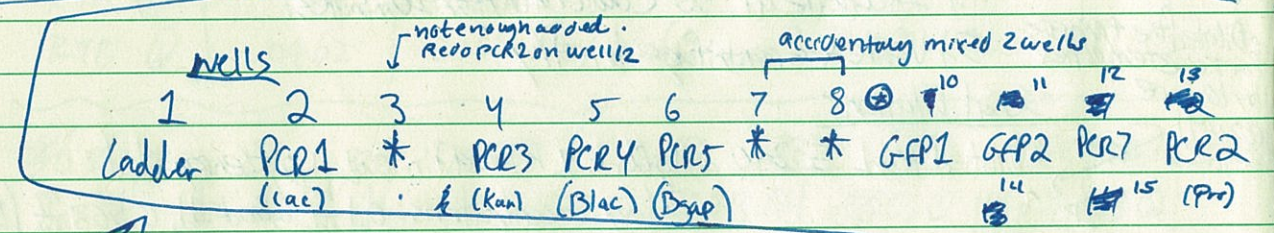 not enough added.
Redo PCR2 on well 12
accidentaly mixed 2 wells
wells
1 2 3 4 5 6 7 8 10 11 12 13
Ladder PCR1 * PCR3 PCR4 PCR5 * * GFP1 GFP2 PCR7 PCR2
(lac) (Kan) (Blac) (Bgap) 14 15 (Pro)